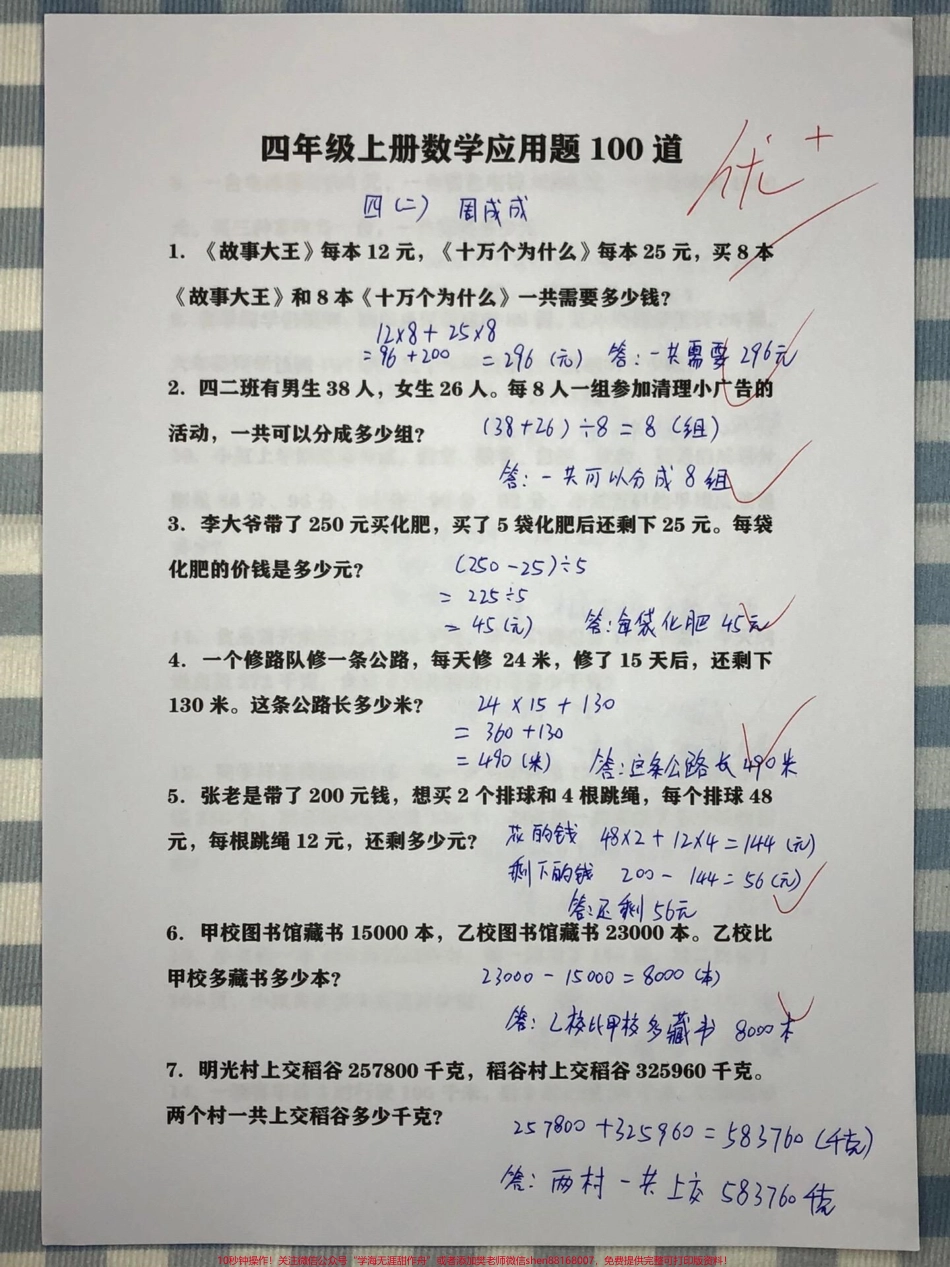 四年级上册数学应用题 100 道
优+
四(二) 周成成
1. 《故事大王》每本 12 元，《十万个为什么》每本 25 元，买 8 本
《故事大王》和 8 本《十万个为什么》一共需要多少钱？
12×8+25×8
=96+200 =296 (元) 答：一共需要 296元
2. 四二班有男生 38 人，女生 26 人。每 8 人一组参加清理小广告的
活动，一共可以分成多少组？ (38+26)÷8=8 (组)
答：一共可以分成 8 组
3. 李大爷带了 250 元买化肥，买了 5 袋化肥后还剩下 25 元。每袋
化肥的价钱是多少元？ (250-25)÷5
= 225÷5
= 45 (元) 答：每袋化肥 45元
4. 一个修路队修一条公路，每天修 24 米，修了 15 天后，还剩下
130 米。这条公路长多少米？ 24×15+130
= 360+130
=490 (米) 答：这条公路长 490米
5. 张老是带了 200 元钱，想买 2 个排球和 4 根跳绳，每个排球 48
元，每根跳绳 12 元，还剩多少元？ 花的钱 48×2+12×4=144 (元)
剩下的钱 200-144=56 (元)
答：还剩 56元
6. 甲校图书馆藏书 15000 本，乙校图书馆藏书 23000 本。乙校比
甲校多藏书多少本？ 23000-15000=8000 (本)
答：乙校比甲校多藏书 8000本
7. 明光村上交稻谷 257800 千克，稻谷村上交稻谷 325960 千克。
两个村一共上交稻谷多少千克？ 257800+325960=583760 (千克)
答：两村一共上交 583760千克
10秒钟操作！关注微信公众号“学海无涯甜作舟”或者添加樊老师微信shen88168007，免费提供完整可打印版资料！